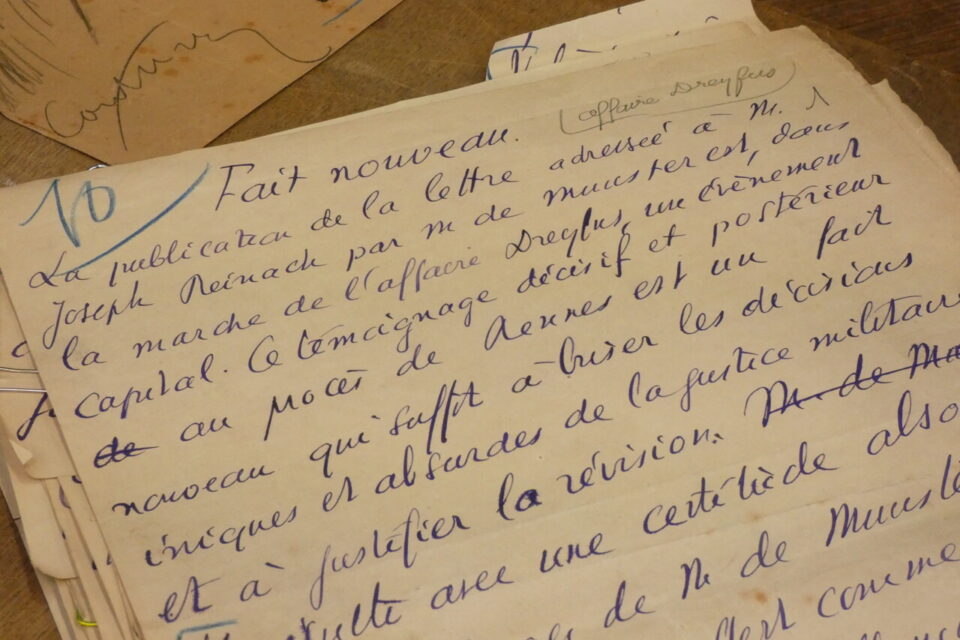 Construire
affaire Dreyfus
10
Fait nouveau.
La publication de la lettre adressée à M.
Joseph Reinach par M de Munster est, dans
la marche de l'affaire Dreyfus, un évènement
capital. Ce témoignage décisif et postérieur
de au procès de Rennes est un fait
nouveau qui suffit à briser les décisions
iniques et absurdes de la justice militaire
et à justifier la révision. M. de
avec une certitude
de M de
comme